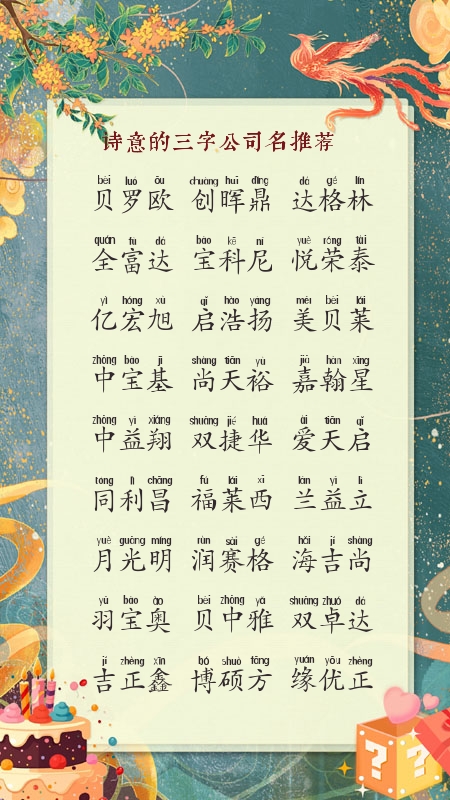 诗意的三字公司名推荐
bèi luó ōu chuàng huī dǐng dá gé lín
贝罗欧 创晖鼎 达格林
quán fù dá bǎo kē ní yuè róng tài
全富达 宝科尼 悦荣泰
yì hóng xù qǐ hào yáng měi bèi lái
亿宏旭 启浩扬 美贝莱
zhōng bǎo jī shàng tiān yù jiā hàn xīng
中宝基 尚天裕 嘉翰星
zhōng yì xiáng shuāng jié huá ài tiān qǐ
中益翔 双捷华 爱天启
tóng lì chāng fú lái xī lán yì lì
同利昌 福莱西 兰益立
yuè guāng míng rùn sài gé hǎi jí shàng
月光明 润赛格 海吉尚
yǔ bǎo ào bèi zhōng yǎ shuāng zhuó dá
羽宝奥 贝中雅 双卓达
jí zhèng xīn bó shuò fāng yuán yōu zhèng
吉正鑫 博硕方 缘优正
? ?